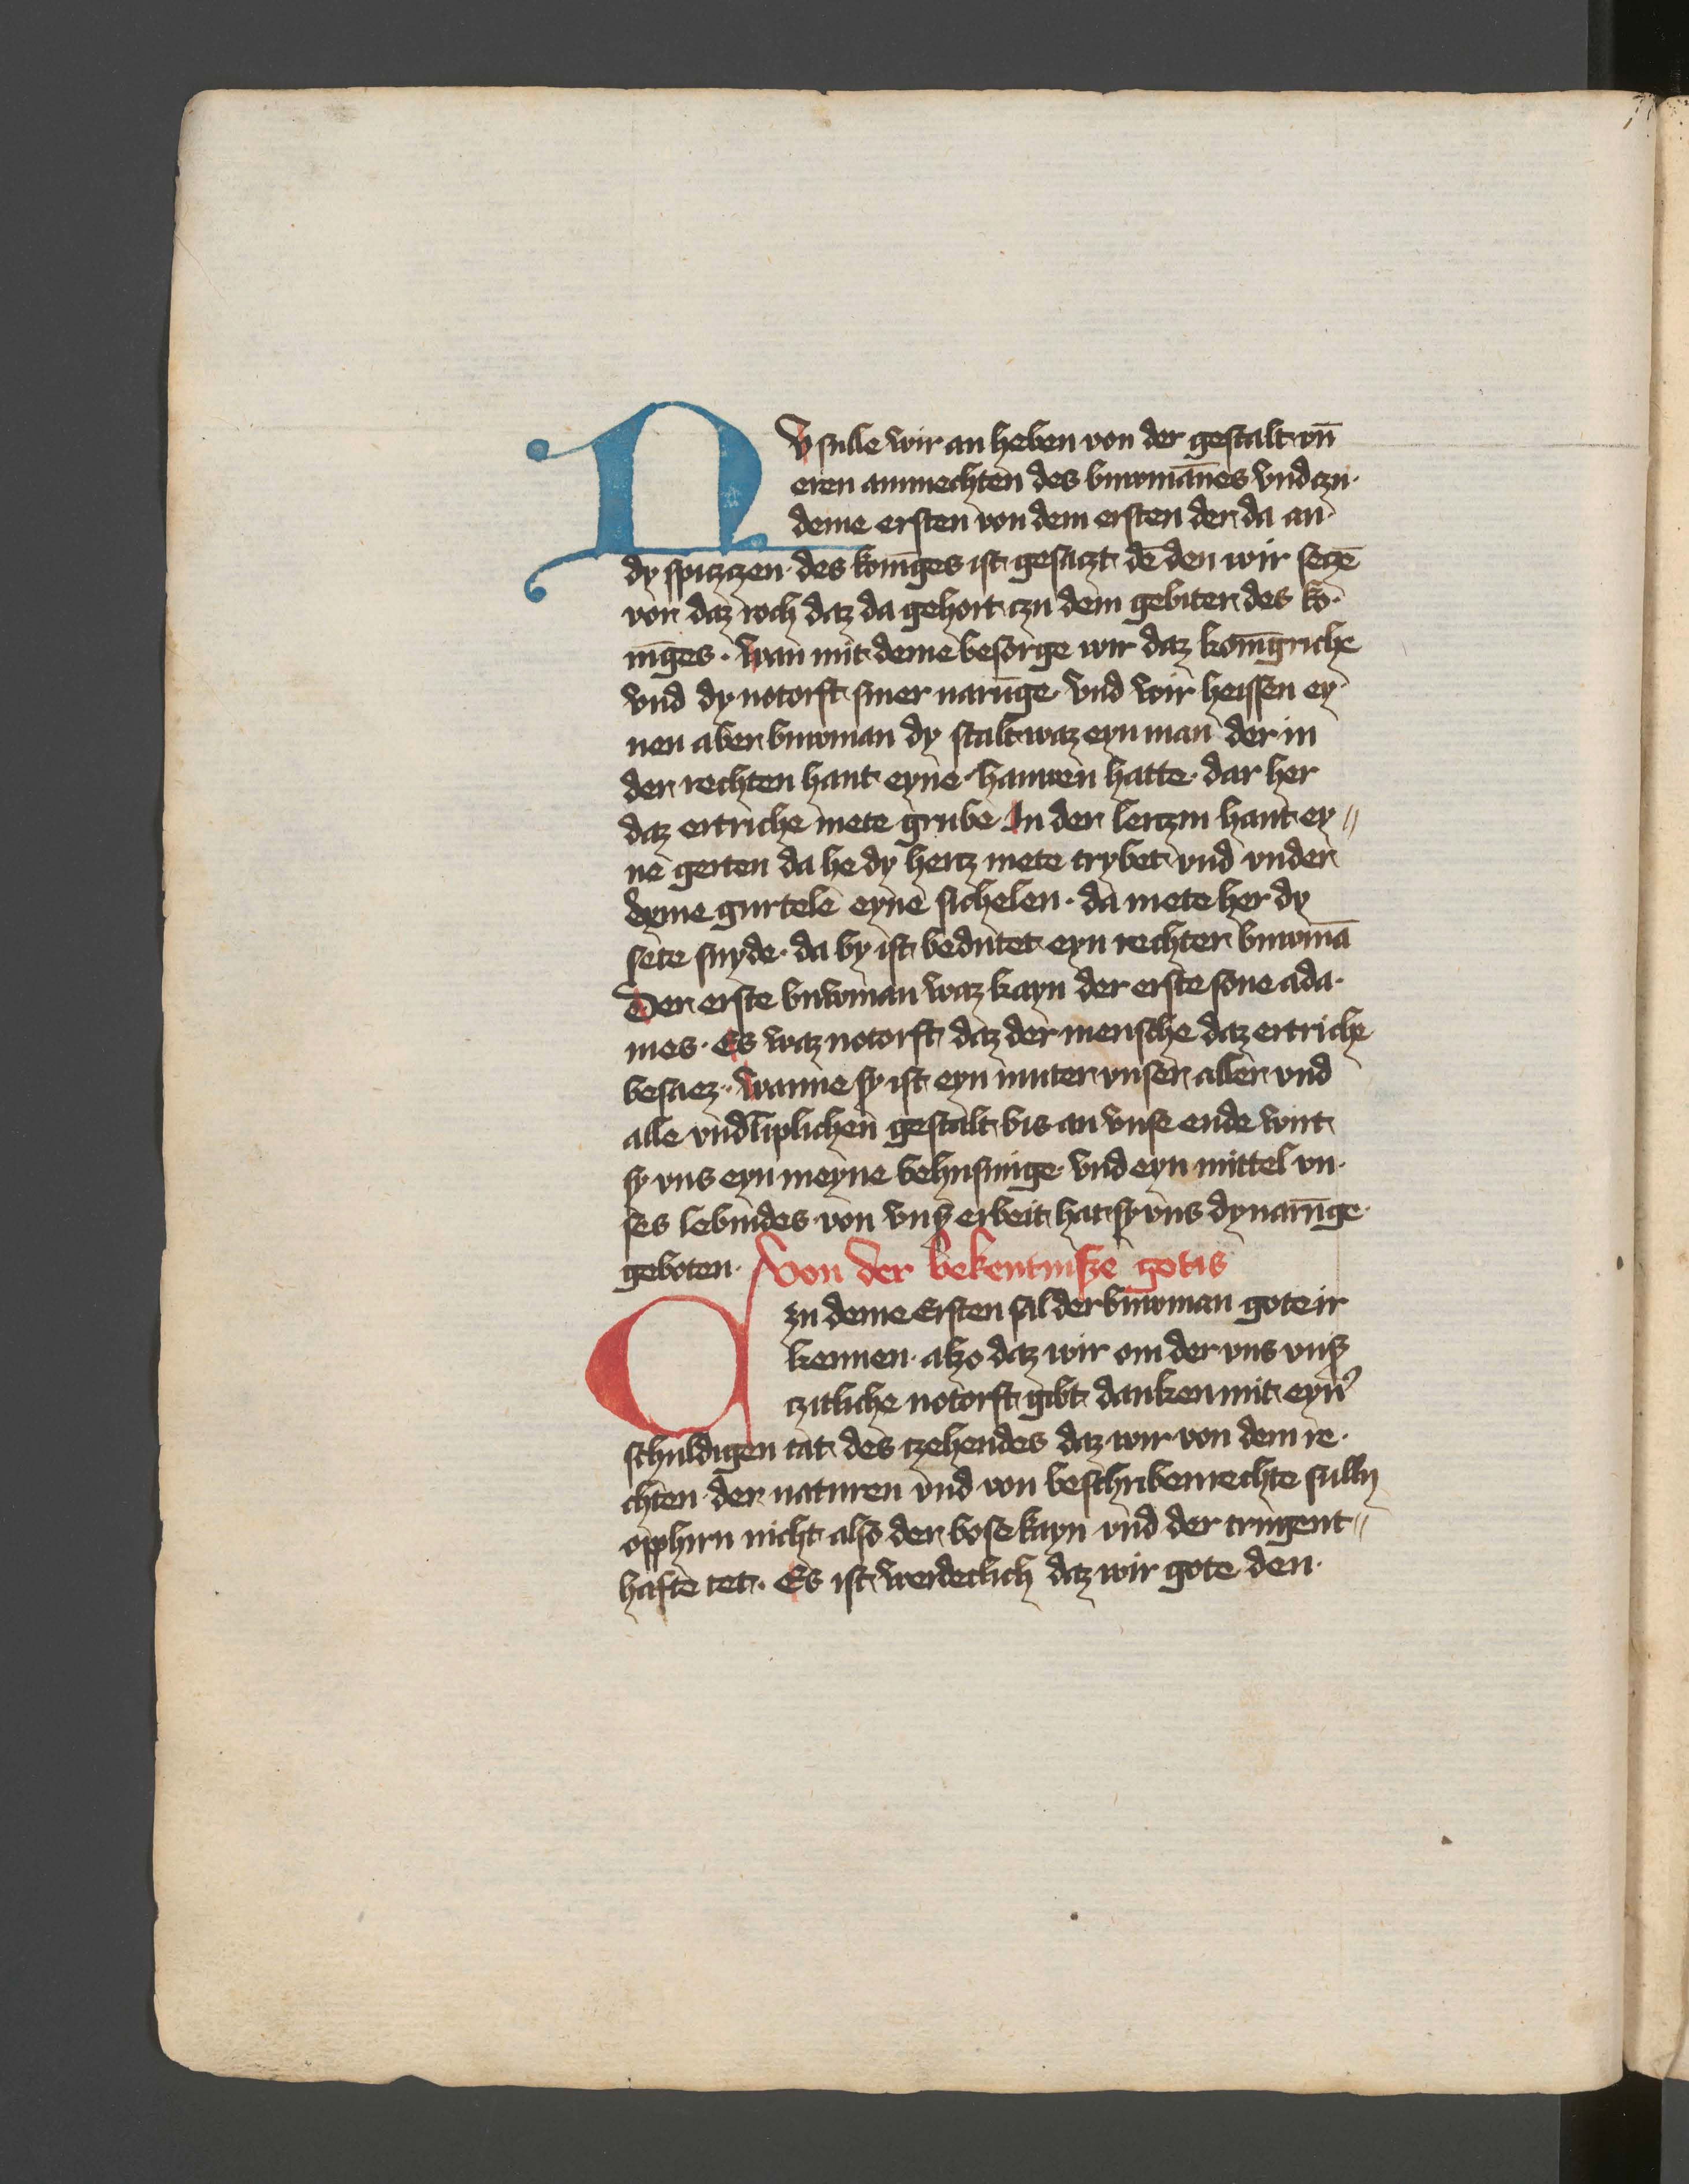 NV sulle wir an heben von der gestalt vn̄
eren ammechten des buwmānes vnd czu·
deme ersten von dem ersten der da an·
dy spiczczen· des konīges ist gesaczt dē den wir seczē
vor daz roch daz da gehort czu dem gebiter des ko·
nīges · wan mit deme besorge wir daz konīgriche
vnd dy notorft siner narūge vnd wir heissen ey
nen aber buwman dy stalt waz eyn man der in
der rechten hant eyne hauwen hatte· dar her
daz ertriche mete grube In der lenczin hant ey〃
ne gerten da he dy hertz mete trybet vnd vnder
deme gurtele eyne sichelen · da mete her dy
sete snyde· da by ist bedutet eyn rechter buwmā
Der erste buwman waz kayn der erste sone ada·
mes · Es waz notorft daz der mensche daz ertriche
besaez · wanne sy ist eyn muter vnser aller vnd
alle vnd liplichen gestalt bis an vnse ende wirt
sy vns eyn meyne behusunge· vnd eyn mittel vn·
ses lebindes von vnß erbeit hat sy vns dy narūge·
geboten· Von der bekentnisze gotis
Czu deme Ersten sal der buwman gote ir
kennen· alzo daz wir om der vns vnß
czitliche notorft gibt danken mit eyn̾
schuldigen tat des czehendes daz wir von dem re·
chten der naturen vnd von beschriben rechte sulln
opphirn nicht also der bose kayn vnd der tringent〃
hafte tet· Es ist werdeclich daz wir gote den·